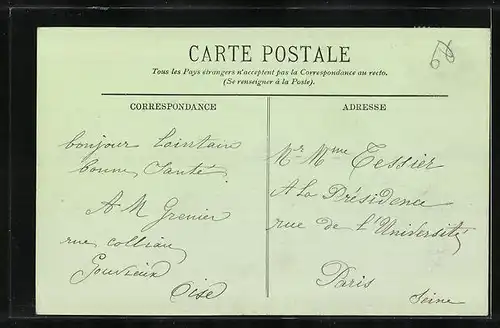 CARTE POSTALE
Tous les Pays étrangers n'acceptent pas la Correspondance au recto.
(Se renseigner à la Poste).
CORRESPONDANCE
bonjour Lointain
bonne Santé
A M Grenier
rue
Gouvieux
Oise
ADRESSE
Mr Mme Tessier
A La Présidence
rue de l'Université
Paris
Seine